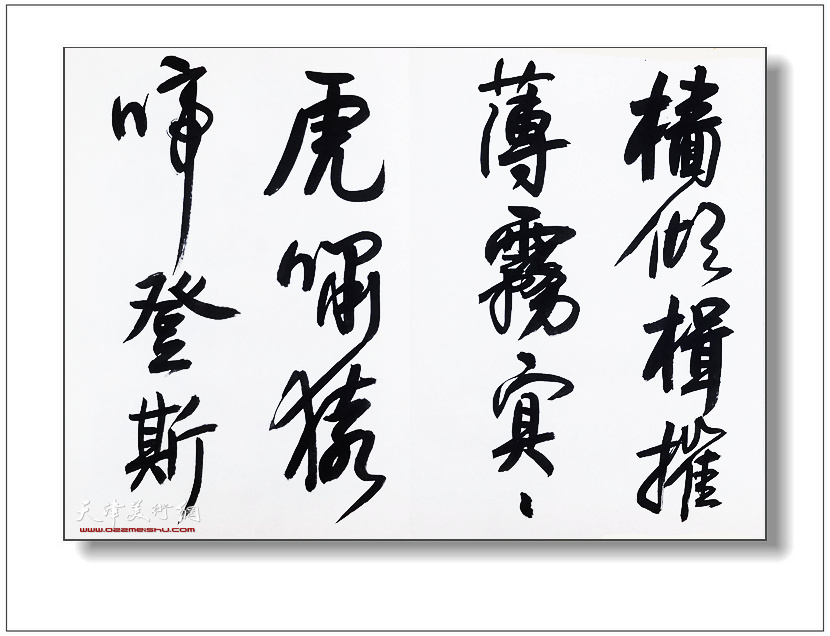 檣傾楫摧
薄霧冥々
虎嘯猿
啼登斯
天津美術網
www.022meishu.com